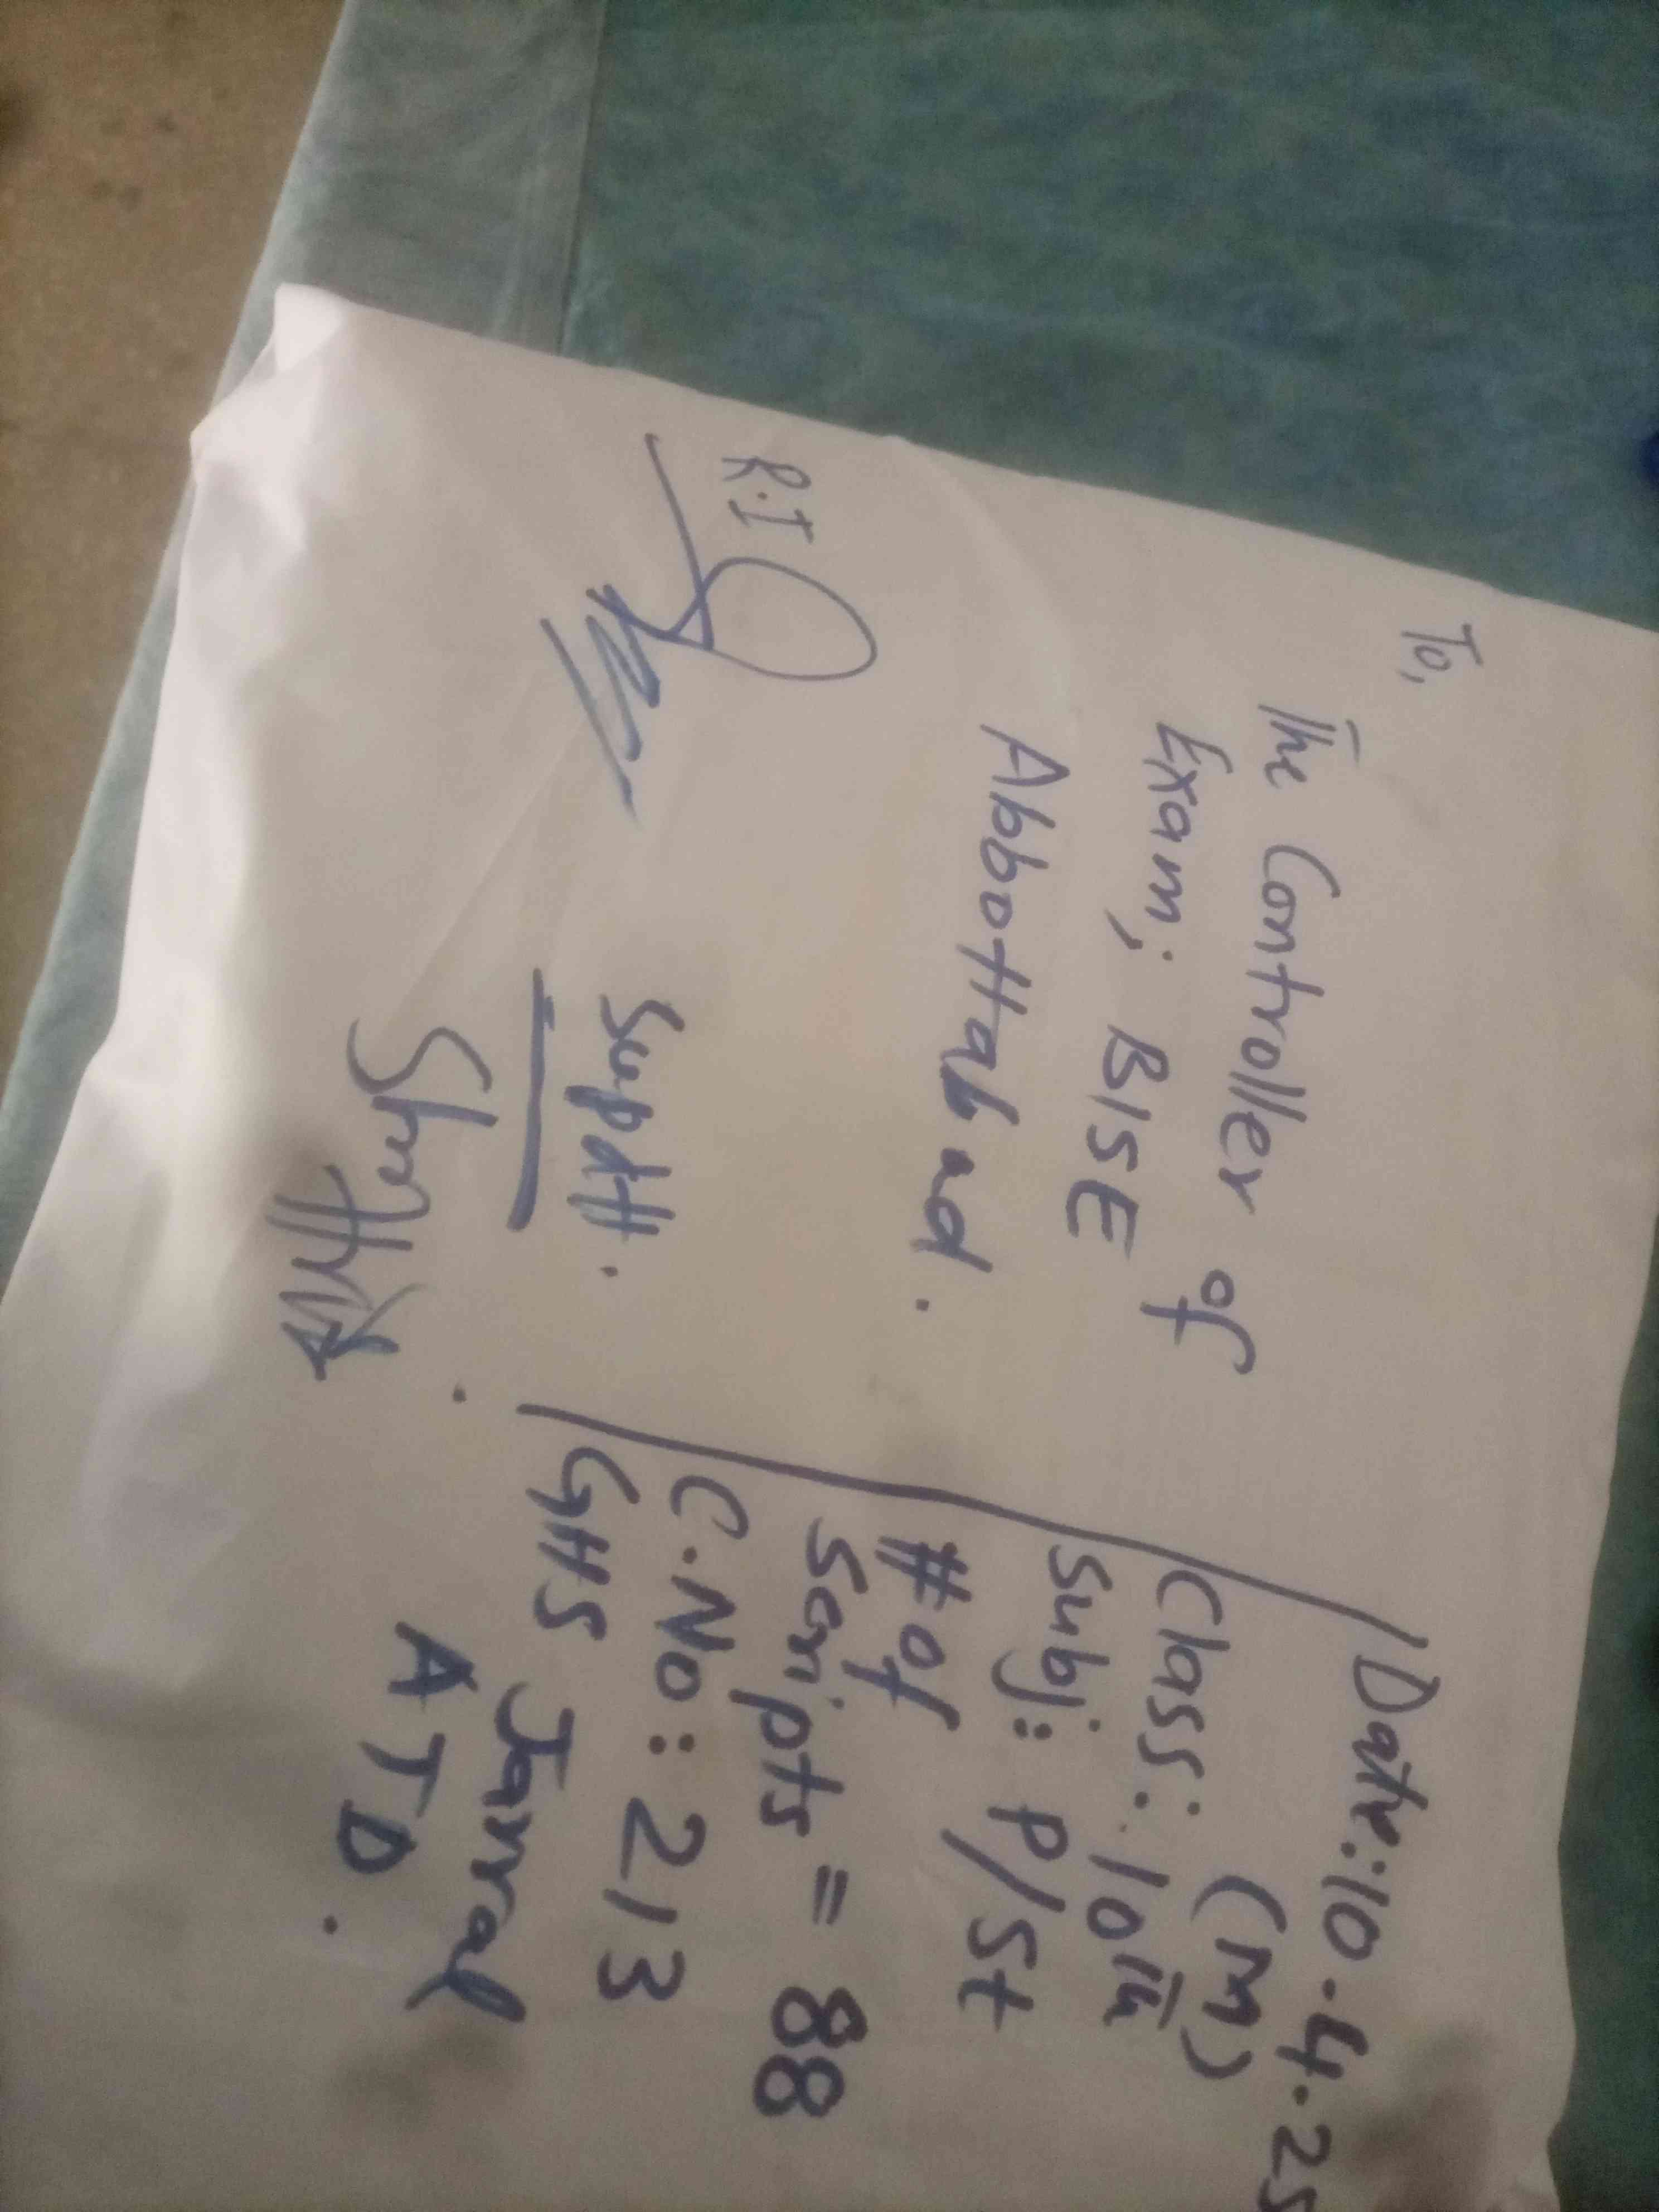 To,
The Controller of
Exam; BISE
Abbottabad.
R.I
Supdtt.
Date: 10.4.25
(M)
Class: 10th
Subj: P/St
# of
Scripts = 88
C.No: 213
GHS Jarral
ATD.